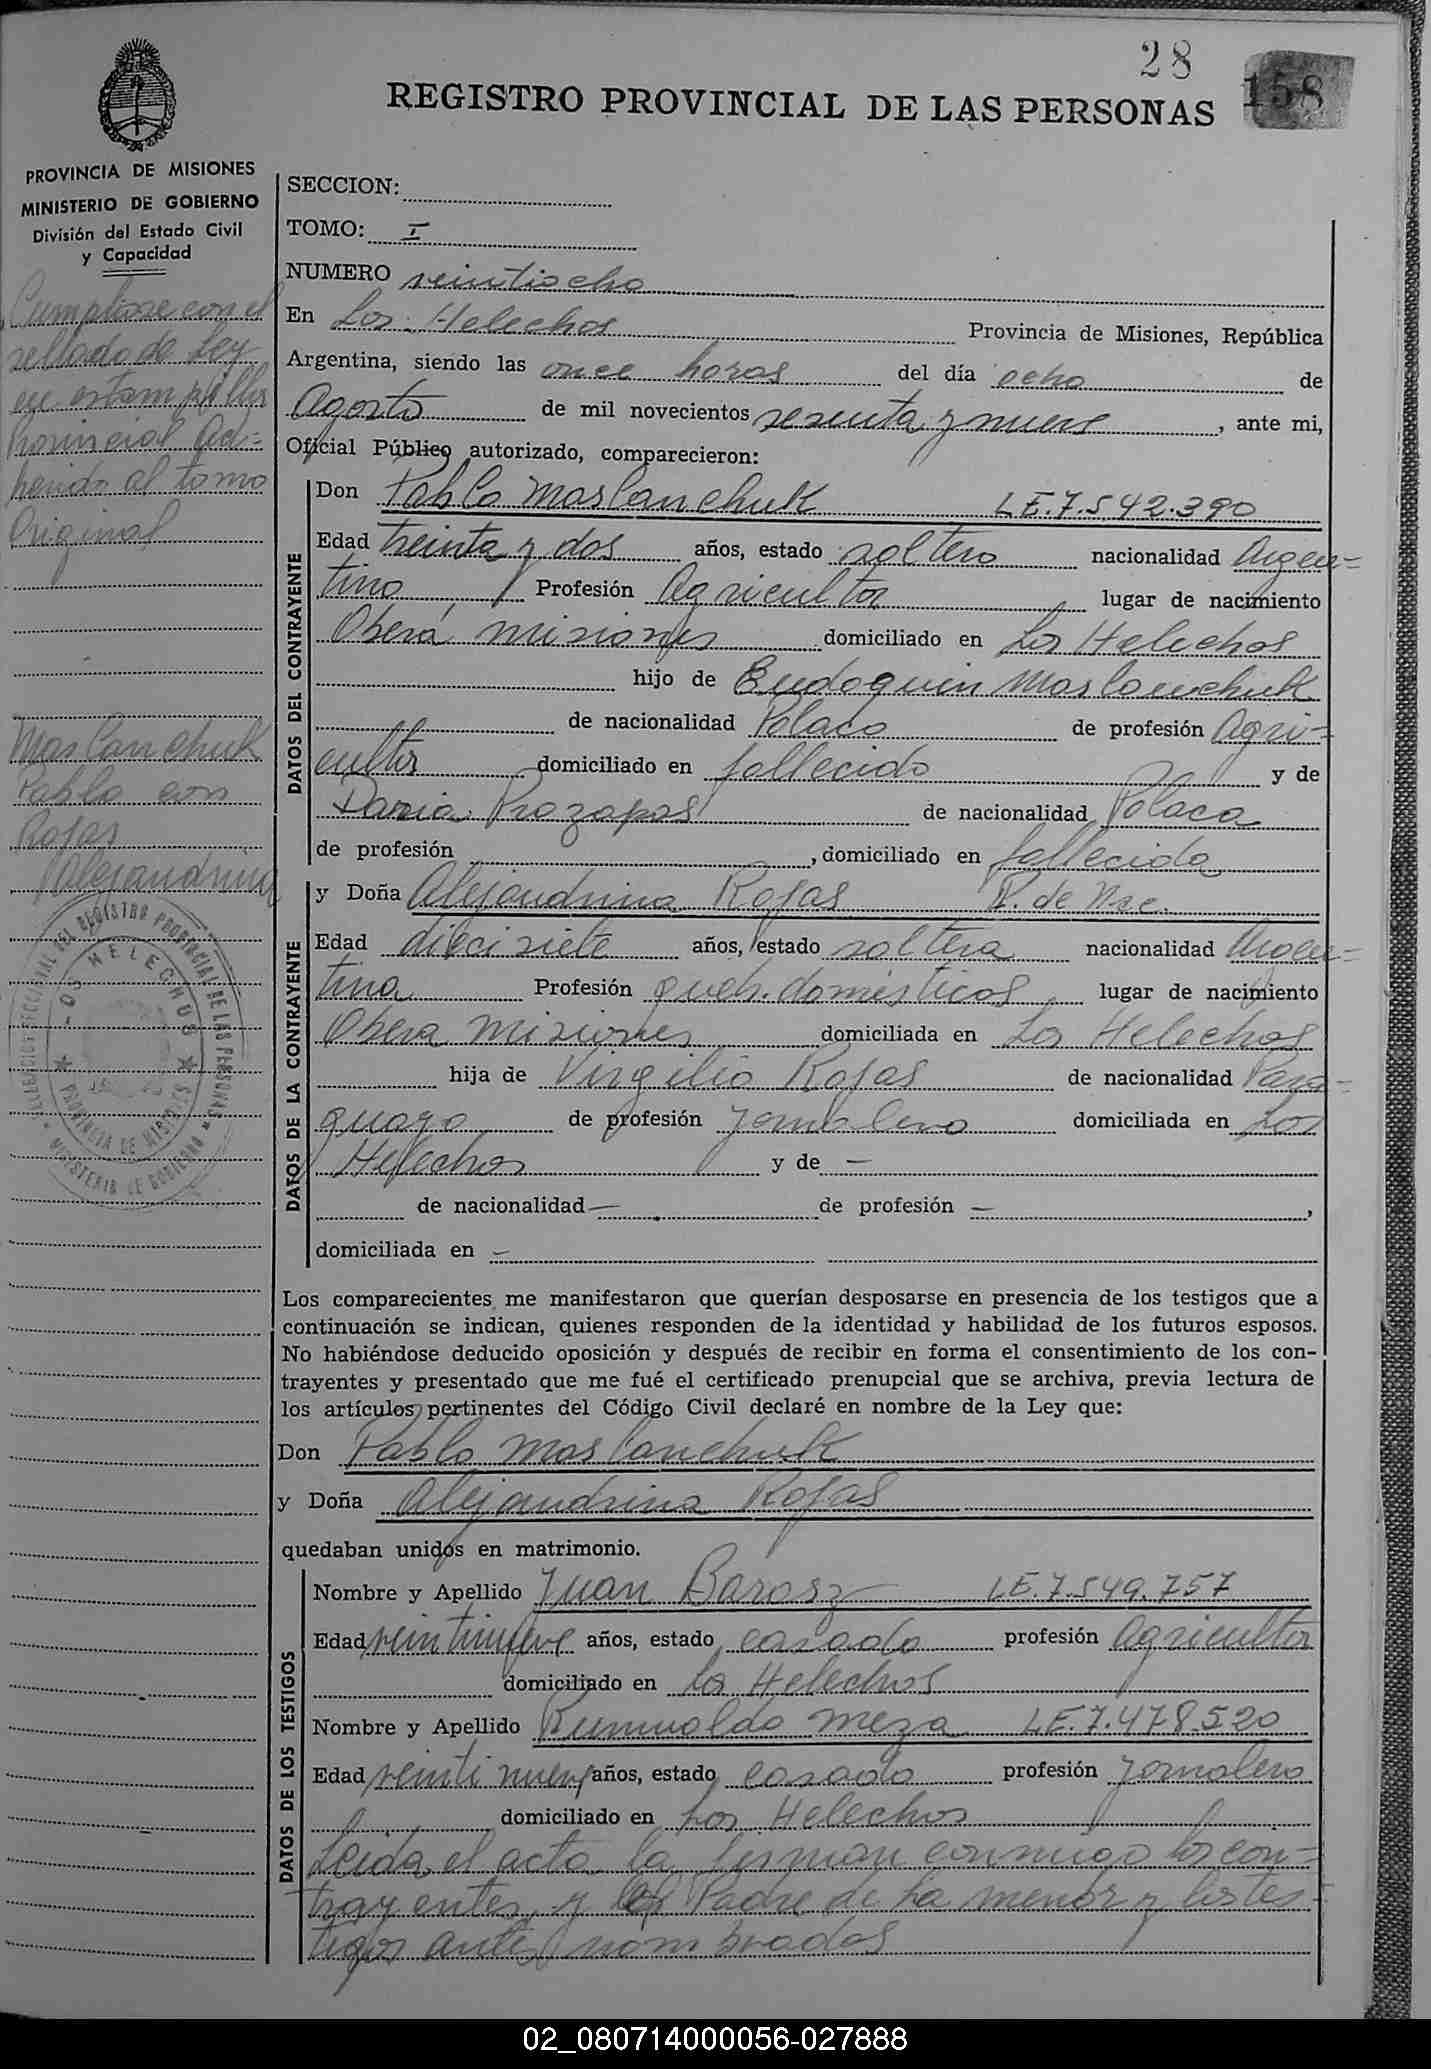 28
158
REGISTRO PROVINCIAL DE LAS PERSONAS
PROVINCIA DE MISIONES
MINISTERIO DE GOBIERNO
División del Estado Civil
y Capacidad
Cumpliose con el
sellado de Ley
en estampillas
Provincial ad=
herido al tomo
Original
Maslanchuk
Pablo con
Rojas
Alejandrina
LOS HELECHOS
PROVINCIA DE MISIONES
MINISTERIO DE GOBIERNO
DEL REGISTRO PROVINCIAL DE LAS PERSONAS
SECCION:
TOMO: I
NUMERO veintiocho
En Los Helechos Provincia de Misiones, República
Argentina, siendo las once horas del día ocho de
Agosto de mil novecientos sesenta y nueve, ante mi,
Oficial Público autorizado, comparecieron:
DATOS DEL CONTRAYENTE
Don Pablo Maslanchuk LE.7.542.390
Edad treinta y dos años, estado soltero nacionalidad Argen=
tino Profesión Agricultor lugar de nacimiento
Oberá, misiones domiciliado en Los Helechos
hijo de Eudoquin Maslanchuk
de nacionalidad Polaco de profesión Agri=
cultor domiciliado en fallecido y de
Daria Prozapas de nacionalidad Polaca
de profesión , domiciliado en fallecida
DATOS DE LA CONTRAYENTE
y Doña Alejandrina Rojas P. de Nac.
Edad diecisiete años, estado soltera nacionalidad Argen=
tina Profesión queh. domésticos, lugar de nacimiento
Obera misiones domiciliada en Los Helechos
hija de Virgilio Rojas de nacionalidad Para=
guayo de profesión Jornalero domiciliada en Los
Helechos y de —
de nacionalidad — de profesión — ,
domiciliada en —
Los comparecientes me manifestaron que querían desposarse en presencia de los testigos que a
continuación se indican, quienes responden de la identidad y habilidad de los futuros esposos.
No habiéndose deducido oposición y después de recibir en forma el consentimiento de los con-
trayentes y presentado que me fué el certificado prenupcial que se archiva, previa lectura de
los artículos pertinentes del Código Civil declaré en nombre de la Ley que:
Don Pablo Maslanchuk
y Doña Alejandrina Rojas
quedaban unidos en matrimonio.
DATOS DE LOS TESTIGOS
Nombre y Apellido Juan Barosz LE.7.549.757
Edad veintinueve años, estado casado profesión Agricultor
domiciliado en Los Helechos
Nombre y Apellido Rumualdo Meza LE.7.478.520
Edad veintinueve años, estado casado profesión Jornalero
domiciliado en Los Helechos
Leida el acta la firman conmigo los con=
trayentes y el Padre de la menor y los tes=
tigos antes nombrados
02_080714000056-027888